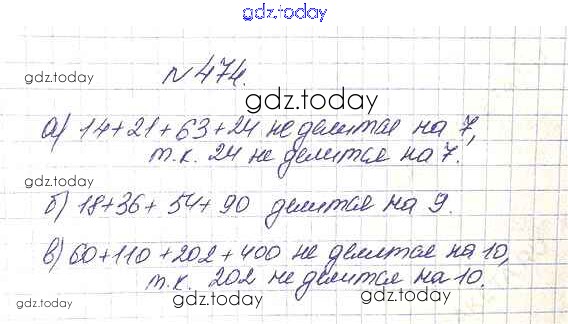 gdz.today
№ 474.
gdz.today
gdz.today
а) 14+21+63+24 не делится на 7,
т.к. 24 не делится на 7.
gdz.today
б) 18+36+54+90 делится на 9.
в) 60+110+202+400 не делится на 10,
т.к. 202 не делится на 10.
gdz.today
gdz.today
gdz.today